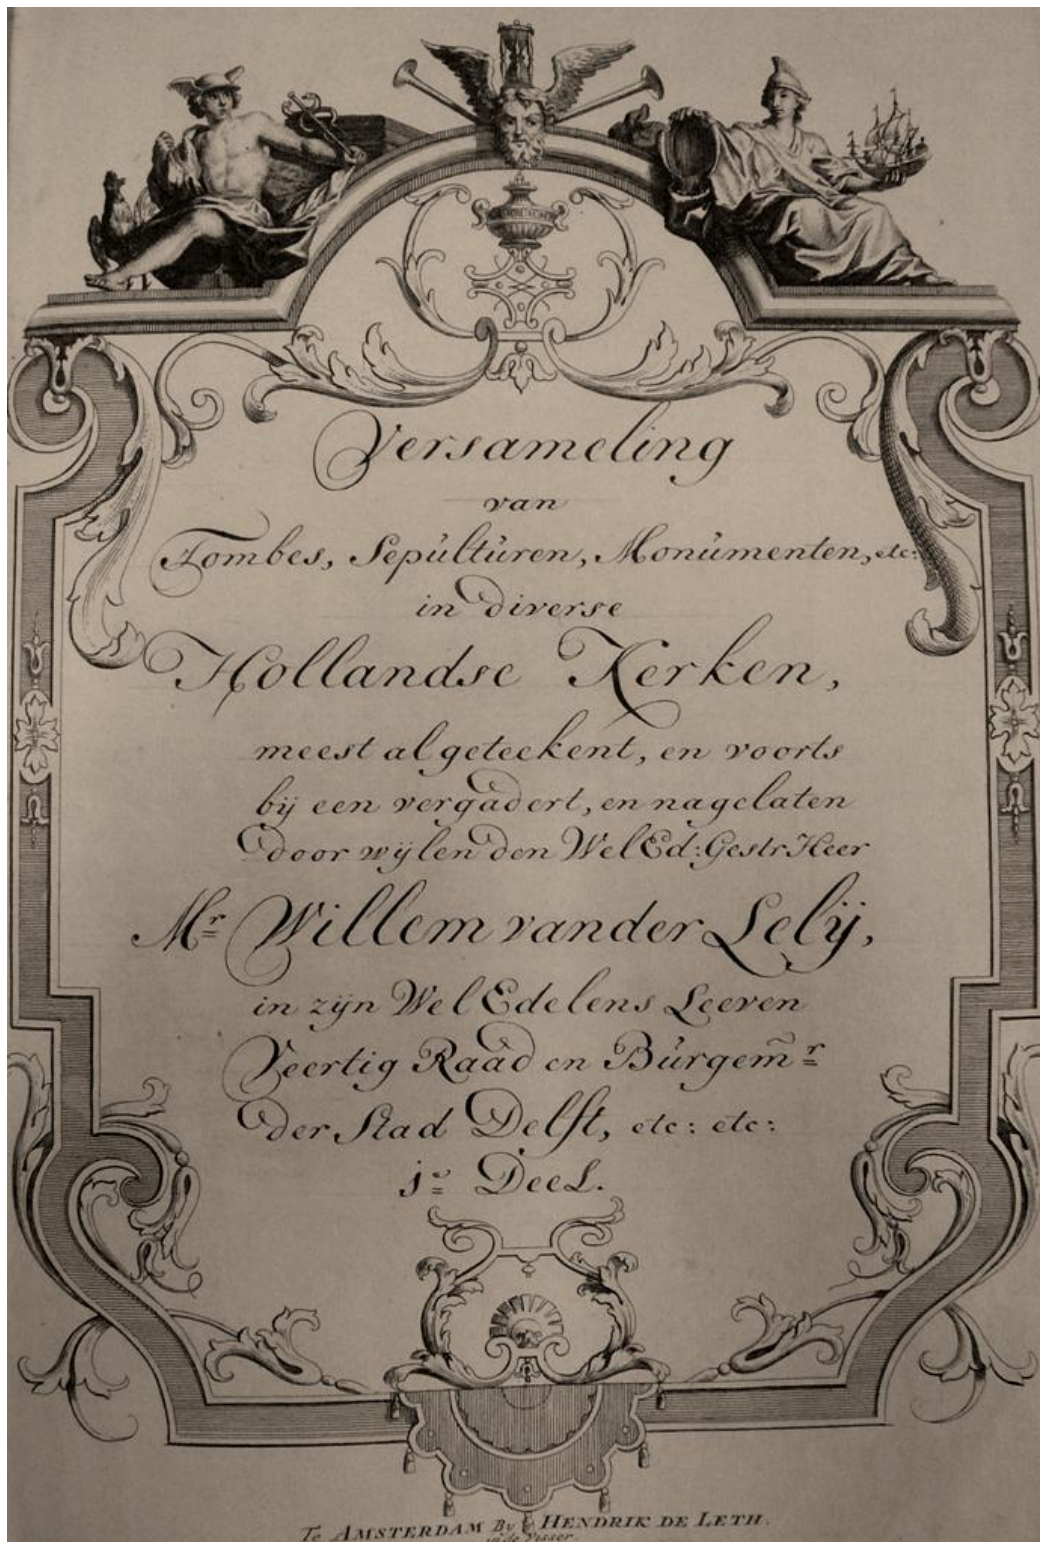 Versameling
van
Tombes, Sepulturen, Monumenten, etc:
in diverse
Hollandse Kerken,
meest al geteekent, en voorts
bij een vergadert, en nagelaten
door wijlen den Wel Ed: Gestr Heer
Mr Willem vander Lelij,
in zijn Wel Edelens Leeven
Veertig Raad en Burgemr
der Stad Delft, etc: etc:
1e Deel.
Te AMSTERDAM By HENDRIK DE LETH.
in de Visser.